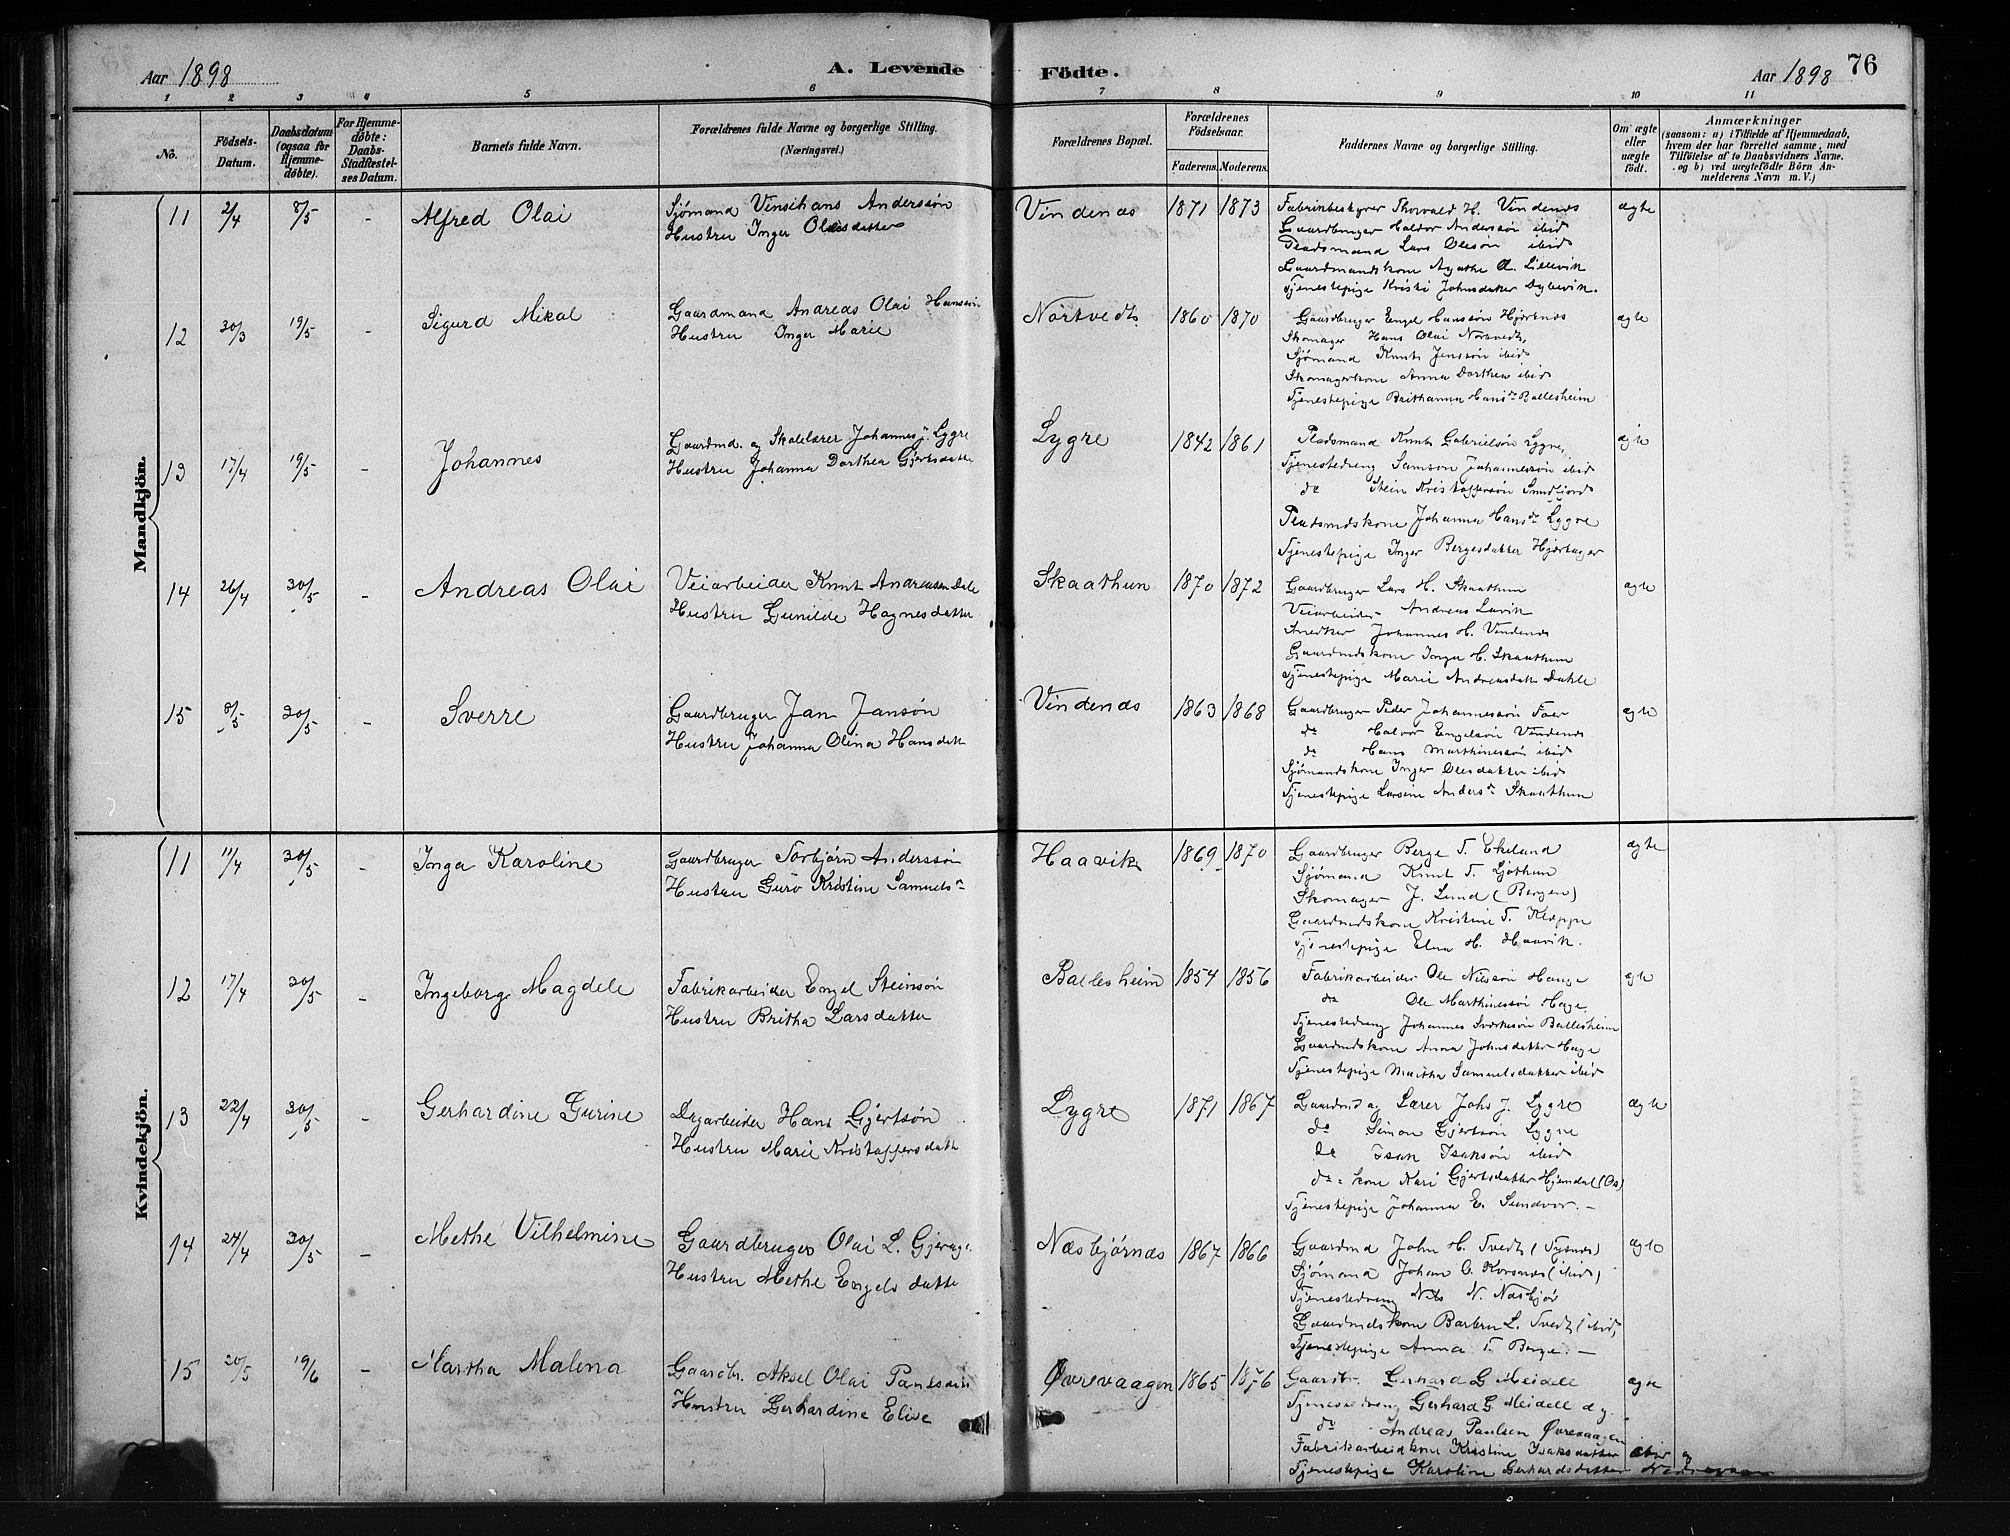 Aar 1898 A. Levende Födte. Aar 1898 76
1 2 3 4 5 6 7 8 9 10 11
No.
Födsels-Datum.
Daabsdatum (ogsaa for Hjemme-döbte).
For Hjemme-döbte: Daabs-Stadfæstel-ses Datum.
Barnets fulde Navn.
Forældrenes fulde Navne og borgerlige Stilling.
(Næringsvei.)
Forældrenes Bopæl.
Forældrenes Födselsaar.
Faderens. Moderens.
Faddernes Navne og borgerlige Stilling.
Om ægte eller uægte födt.
Anmærkninger
(saasom: a) i Tilfælde af Hjemmedaab,
hvem der har forrettet samme, med
Tilföielse af to Daabsvidners Navne.
og b) ved uægtefödte Börn An-
melderens Navn m. V.)
Mandkjön.
11 2/4 8/5 - Alfred Olai
Sjömand Vinsihans Anderssön
Hustru Inger Olesdatter
Vindenæs 1871 1873
Fabrikbestyrer Thorvald H. Vindenes
Gaardbruger Haldor Anderssön ibid
Pladsmand Lars Olesön ibid
Gaardmandskone Agathe O. Lillevik
Tjenestepige Kristi Johnsdatter Dybevik.
ægte
12 30/3 19/5 - Sigurd Mikal
Gaardmand Andreas Olai Hanssön
Hustru Inger Marie
Nörtvedt 1860 1870
Gaardbruger Engel Hanssön Hjörnes
Skomager Hans Olai Nortvedt,
Sjömand Knut Jenssön ibid
Skomagerkone Anna Dorthea ibid
Tjenestepige Brithanna Hansdr Ballesheim
ægte
13 17/4 19/5 - Johannes
Gaardmd. og Skolelærer Johannes J. Lygre
Hustru Johanna Dorthea Gjertsdatter
Lygre 1842 1861
Pladsmand Knut Gabrielsön Lygre,
Tjenestedreng Samson Johannessön ibid
do Stein Kristoffersön Sundfjord
Pladsmdskone Johanna Hansdr Lygre
Tjenestepige Inger Bergesdatter Hjortager
ægte
14 26/4 30/5 - Andreas Olai
Veiarbeider Knut Andreassen Dale
Hustru Gunilde Hagnesdatter
Skaathun 1870 1872
Gaardbruger Lars H. Skaathun
Veiarbeider Andreas Lavik
Snedker Johannes H. Vindenes
Gaardmdskone Inga H. Skaathun
Tjenestepige Marie Andreasdatter Dahle
ægte
15 8/5 30/5 - Sverre
Gaardbruger Jan Jansön
Hustru Johanna Olina Hansdatt
Vindenæs 1863 1868
Gaardbruger Peder Johannessön Foer
do Halvor Engelsön Vindenes
do Hans Marthinessön ibid
Sjömandskone Inger Olesdatter ibid
Tjenestepige Larsine Andersdr Skaathun
ægte
Kvindekjön.
11 11/4 30/5 - Inga Karoline
Gaardbruger Torbjörn Anderssön
Hustru Guro Kristine Samuelsdr
Haavik 1869 1870
Gaardbruger Berge T. Ekeland
Sjömand Knut T. Ljothun
Skomager J. Lund (Bergen)
Gaardmdskone Kristine T. Kleppe
Tjenestepige Elen H. Haavik.
ægte
12 17/4 30/5 - Ingeborg Magdele
Fabrikarbeider Engel Steinsön
Hustru Britha Larsdatter
Ballesheim 1854 1856
Fabrikarbeider Ole Nilssön Hauge
do Ole Marthinessön Hage
Tjenestedreng Johannes Sverkesön Ballesheim
Gaardmdskone Anna Johnsdatter Hage
Tjenestepige Martha Samuelsdatter ibid
ægte
13 22/4 30/5 Gerhardine Gurine
Dagarbeider Hans Gjertsön
Hustru Marie Kristoffersdatt
Lygre 1871 1867
Gaardmd og Lærer Johs J. Lygre
do Simon Gjertsön Lygre
do Isak Isaksön ibid
do kone Kari Gjertsdatter Hjemdal (Os)
Tjenestepige Johanna E. Sundvor. -
ægte
14 24/4 30/5 - Methe Vilhelmine
Gaardbruger Olai L. Gjerage
Hustru Methe Engelsdatte
Næsbjørnæs 1867 1866
Gaardmd John H. Tvedt (Tysnes)
Sjømand Johan O. Korsnes (ibid)
Tjenestedreng Nils N. Næsbjør
Gaardmdskone Barbru L. Tvedt (ibid,
Tjenestepige Anna T. Berge. -
ægte
15 20/5 19/6 - Martha Malena
Gaardbr. Aksel Olai Paulsen
Hustru Gerhardine Elise
Øvrevaagen 1865 1876
Gaardbr. Gerhard G Meidell
Tjenestedreng Gerhard G. Meidell d.y.
do Andreas Paulsen Øvrevaagen
Fabrikarbeidkone Kristine Isaksdatter ibid
Tjenestepige Karoline Gerhardsdatter
ægte